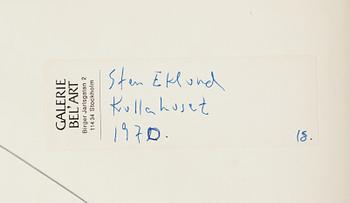 GALERIE
BEL'ART
Birger Jarlsgatan 2
114 34 Stockholm
Sten Eklund
Kullahuset
1970.
18.